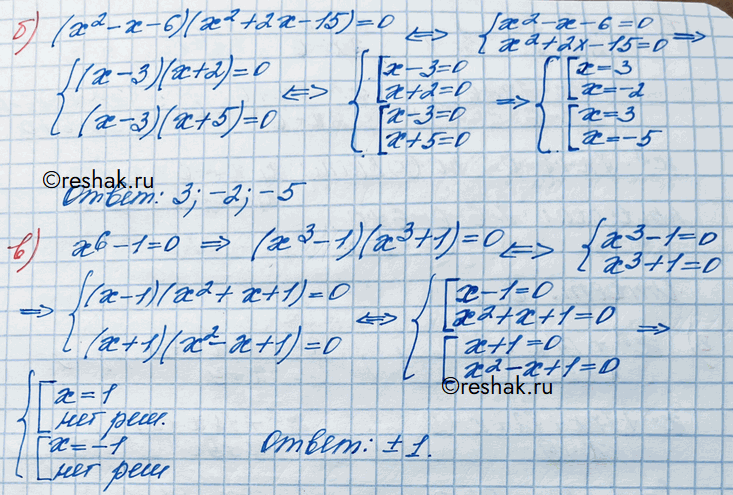 б) (x²-x-6)(x²+2x-15)=0 ⇔ { x²-x-6=0
x²+2x-15=0 ⇒
{ (x-3)(x+2)=0
(x-3)(x+5)=0 ⇔ { [ x-3=0
x+2=0
[ x-3=0
x+5=0 ⇒ { [ x=3
x=-2
[ x=3
x=-5
©reshak.ru
Ответ: 3; -2; -5
в) x⁶-1=0 ⇒ (x³-1)(x³+1)=0 ⇔ { x³-1=0
x³+1=0
⇒ { (x-1)(x²+x+1)=0
(x+1)(x²-x+1)=0 ⇔ { [ x-1=0
x²+x+1=0
[ x+1=0
x²-x+1=0 ⇒
©reshak.ru
{ [ x=1
нет реш.
[ x=-1
нет реш
Ответ: ±1.